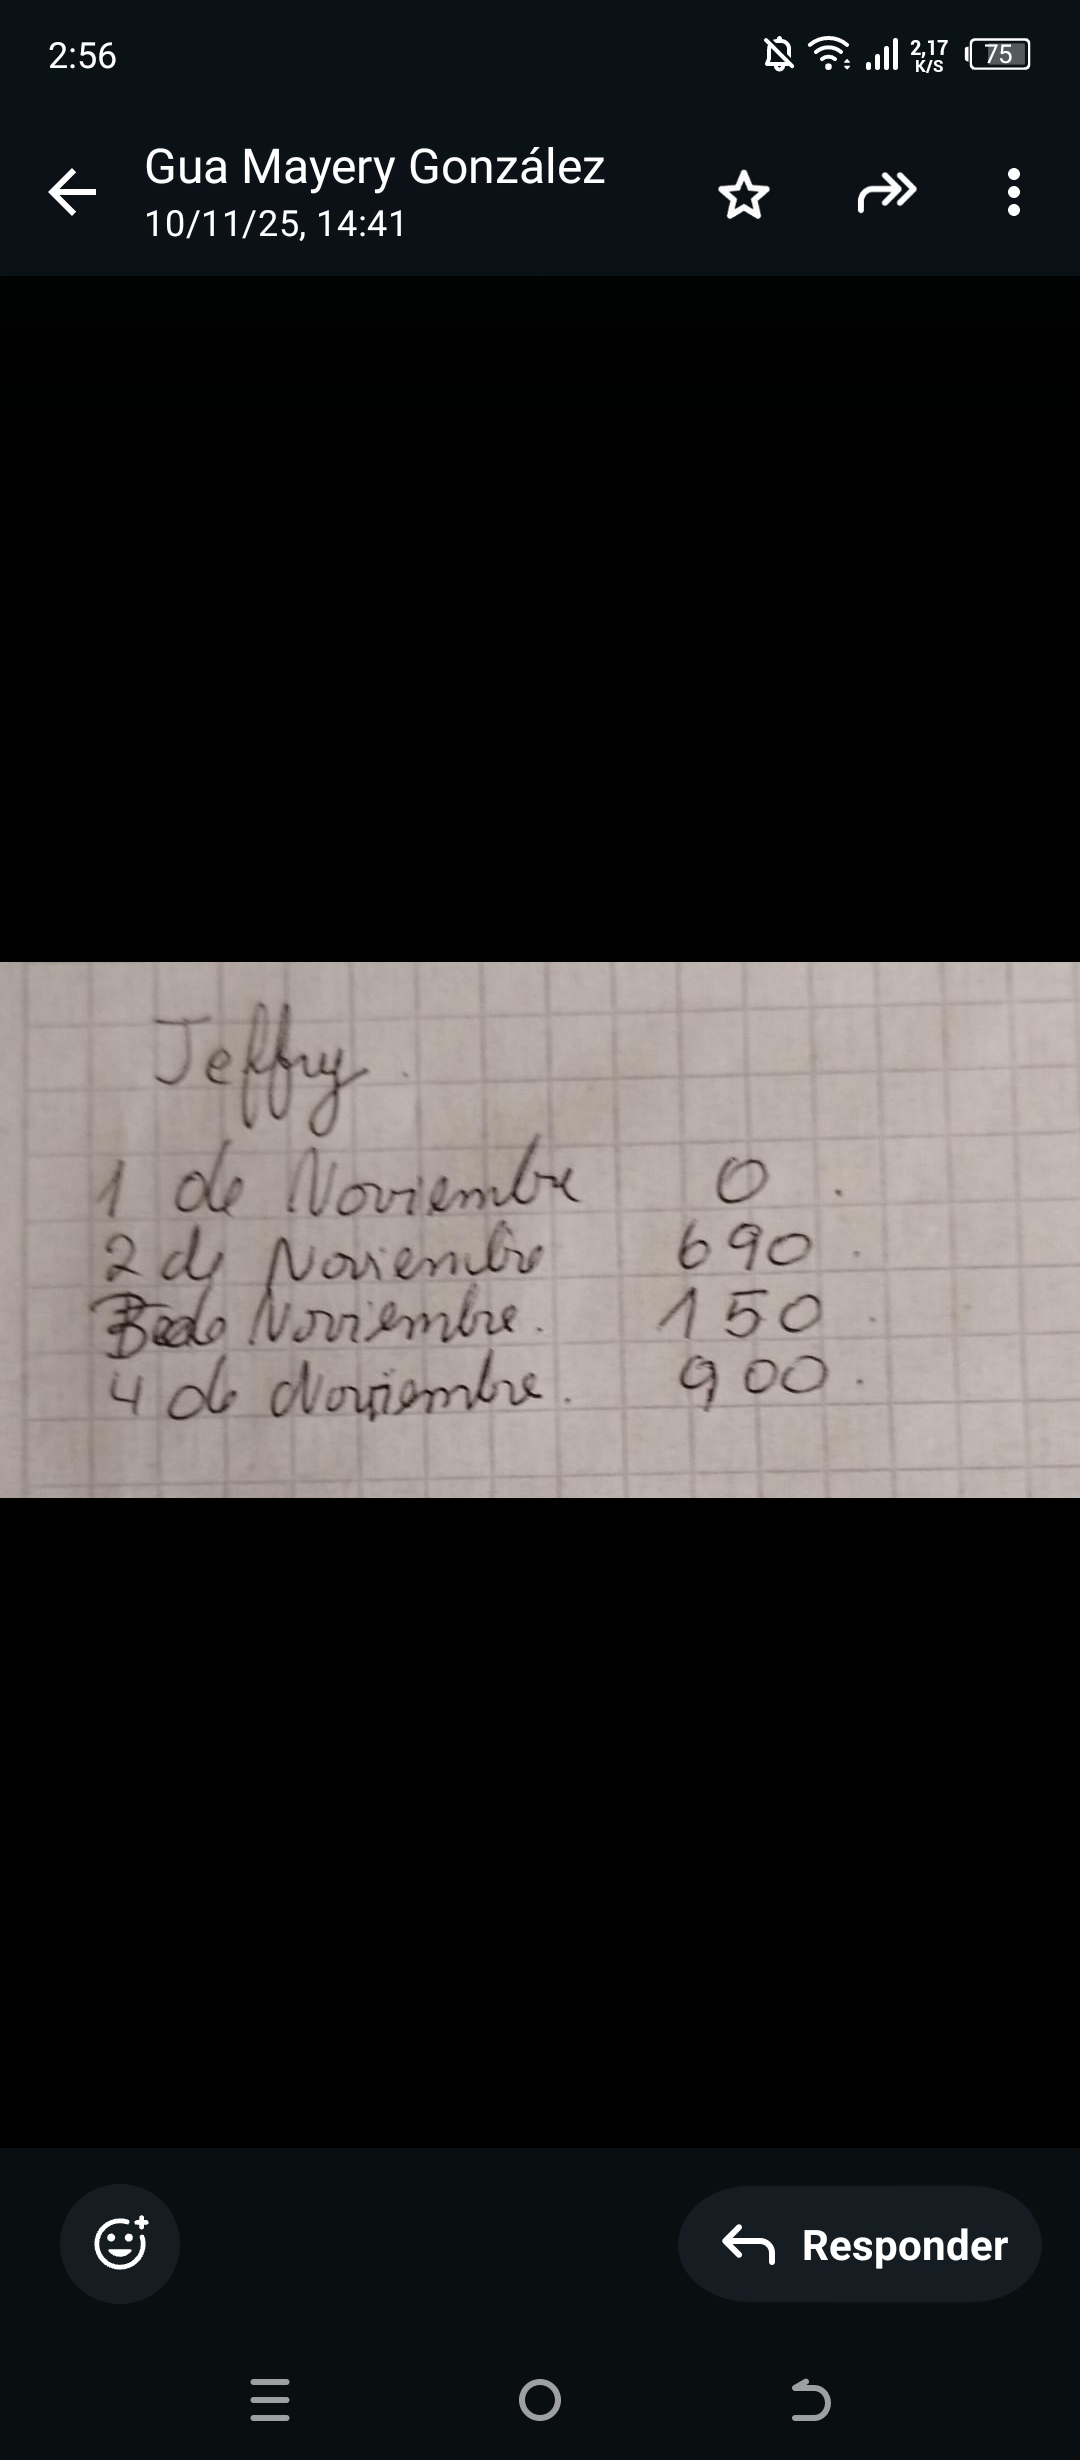 2:56
2,17
K/S
75
Gua Mayery González
10/11/25, 14:41
Jeffry.
1 de Noviembre 0.
2 de Noviembre 690.
3 de Noviembre. 150.
4 de Noviembre. 900.
Responder